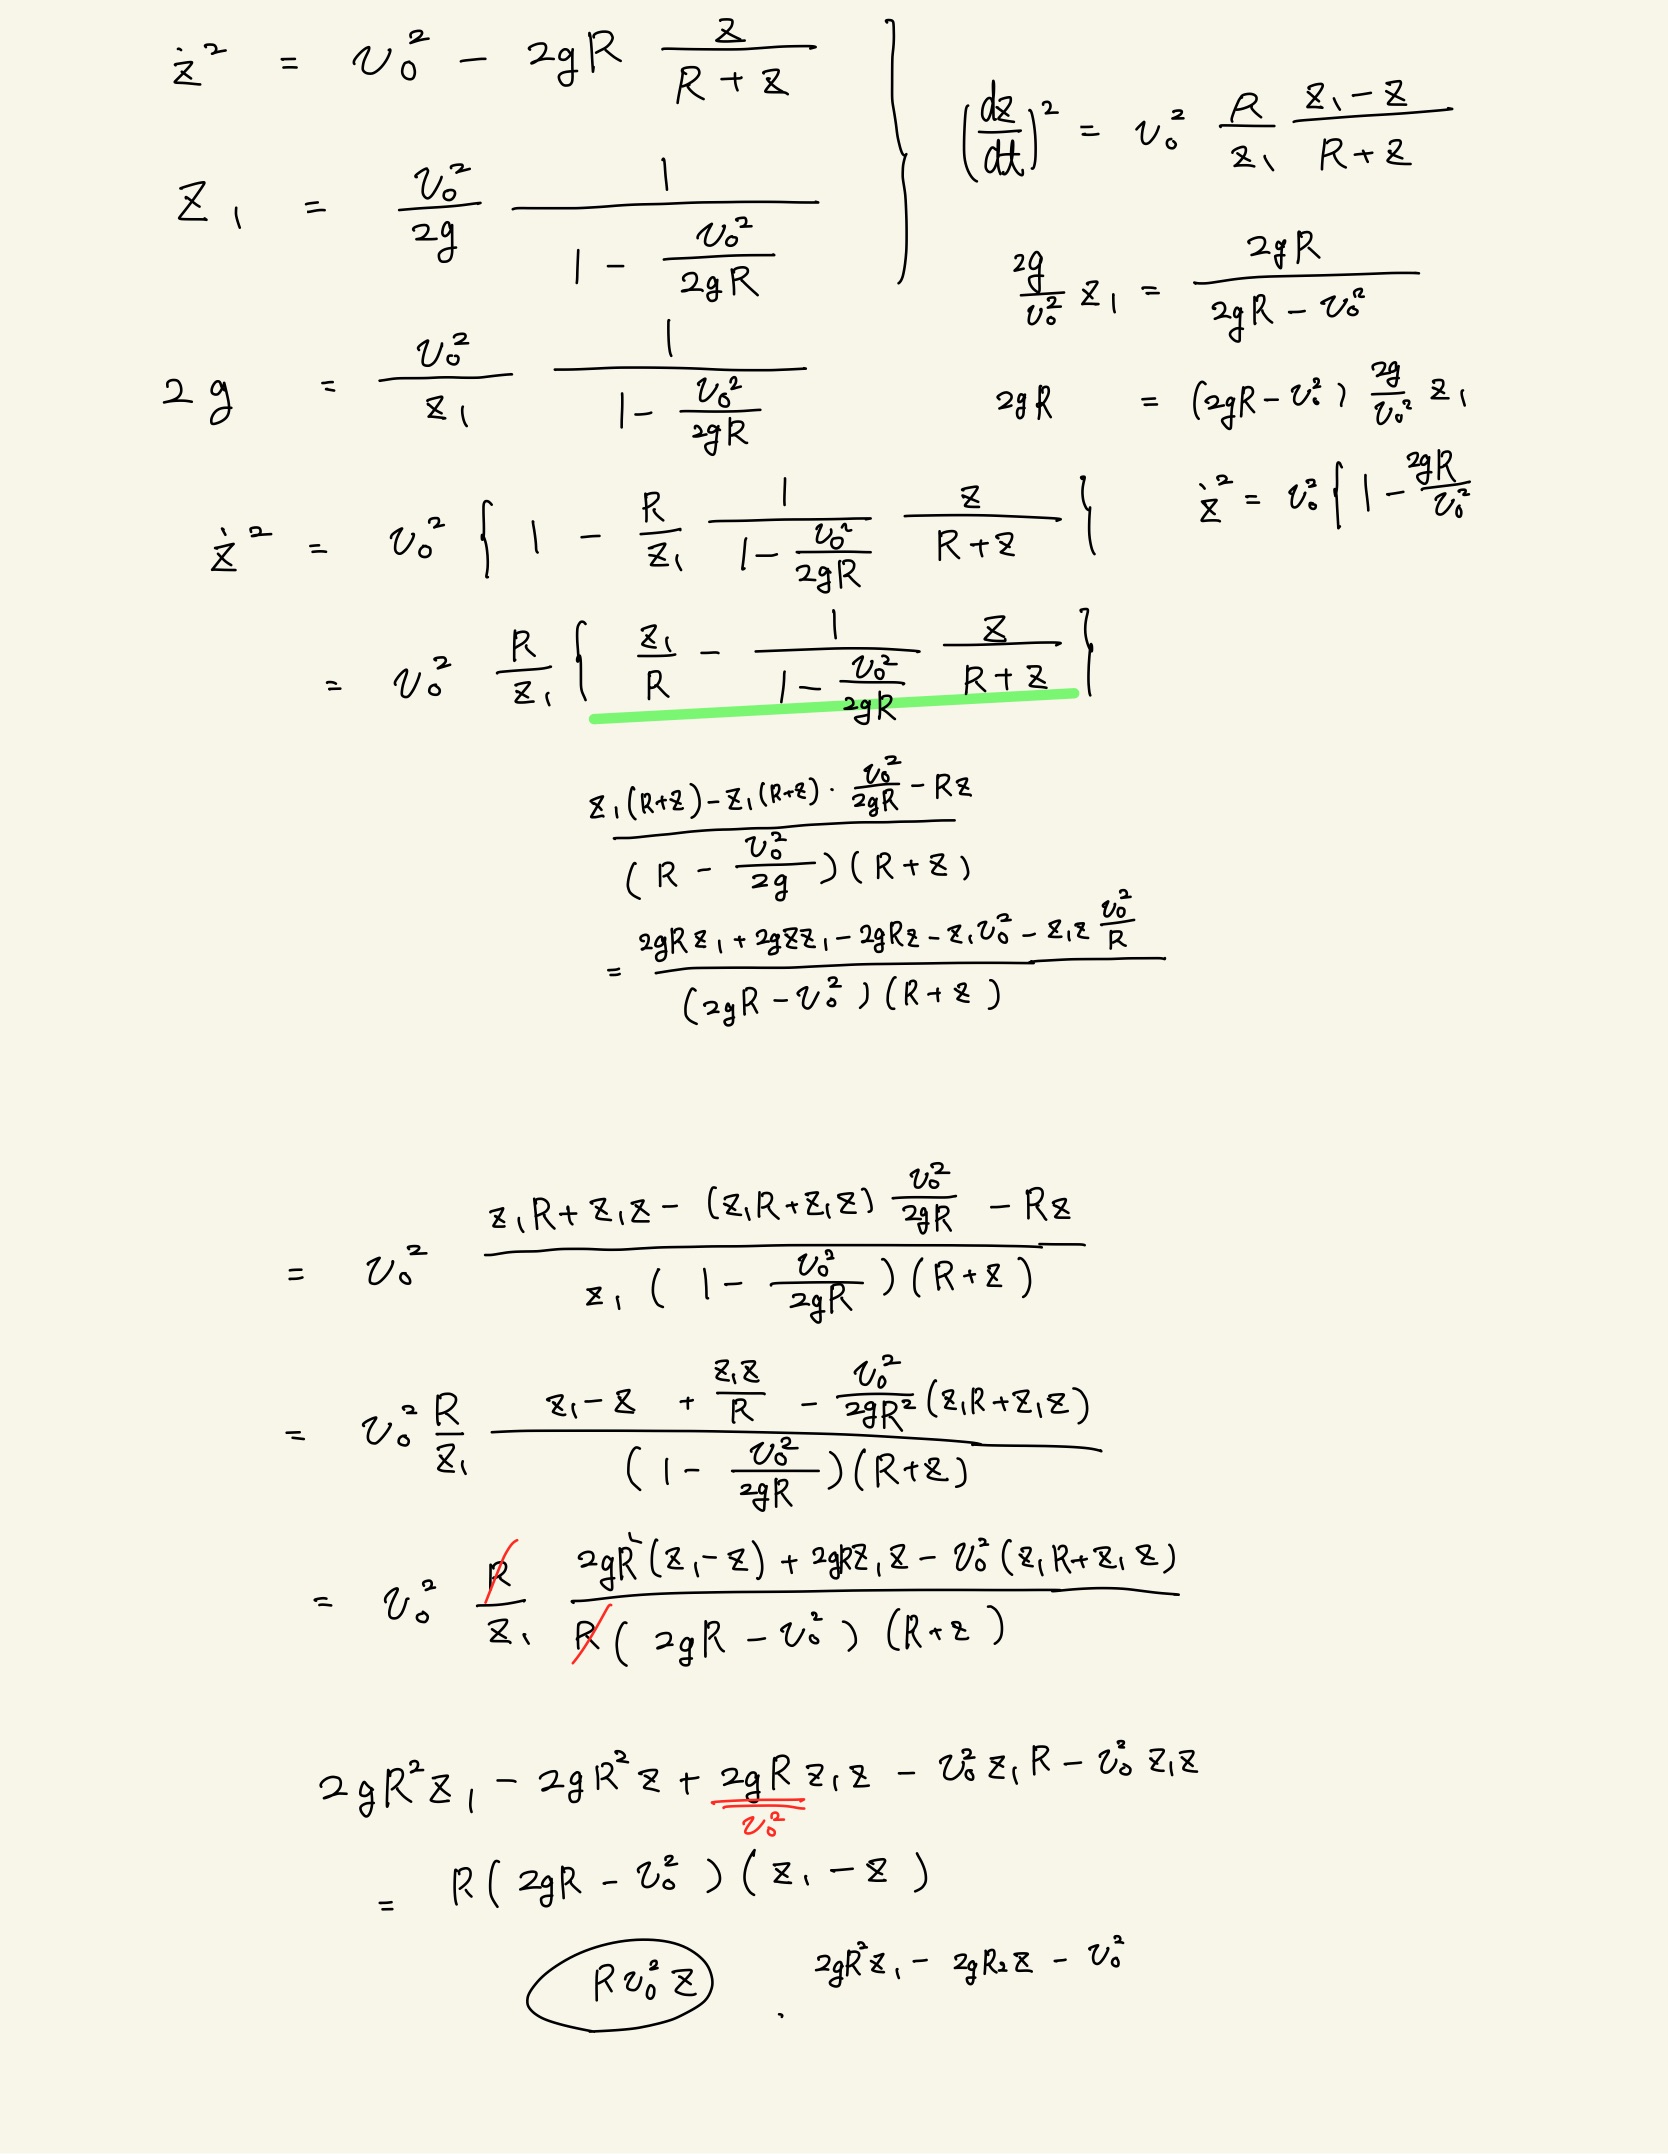 ż² = v₀² - 2gR z/(R+z)
z₁ = v₀²/2g 1/(1 - v₀²/2gR)
(dz/dt)² = v₀² R/z₁ (z₁-z)/(R+z)
2g/v₀² z₁ = 2gR/(2gR - v₀²)
2g = v₀²/z₁ 1/(1 - v₀²/2gR)
2gR = (2gR - v₀²) 2g/v₀² z₁
ż² = v₀² { 1 - R/z₁ 1/(1 - v₀²/2gR) z/(R+z) }
ż² = v₀² { 1 - 2gR/v₀²
= v₀² R/z₁ { z₁/R - 1/(1 - v₀²/2gR) z/(R+z) }
(z₁(R+z) - z₁(R+z)·v₀²/2gR - Rz)/((R - v₀²/2g)(R+z))
= (2gRz₁ + 2gzz₁ - 2gRz - z₁v₀² - z₁z v₀²/R)/((2gR - v₀²)(R+z))
= v₀² (z₁R + z₁z - (z₁R+z₁z) v₀²/2gR - Rz)/(z₁(1 - v₀²/2gR)(R+z))
= v₀² R/z₁ (z₁-z + z₁z/R - v₀²/2gR² (z₁R+z₁z))/((1 - v₀²/2gR)(R+z))
= v₀² R/z₁ (2gR²(z₁-z) + 2gRz₁z - v₀²(z₁R+z₁z))/(R(2gR - v₀²)(R+z))
2gR²z₁ - 2gR²z + 2gR z₁z - v₀²z₁R - v₀²z₁z
v₀²
= R(2gR - v₀²)(z₁ - z)
Rv₀²z
2gR²z₁ - 2gR₂z - v₀²